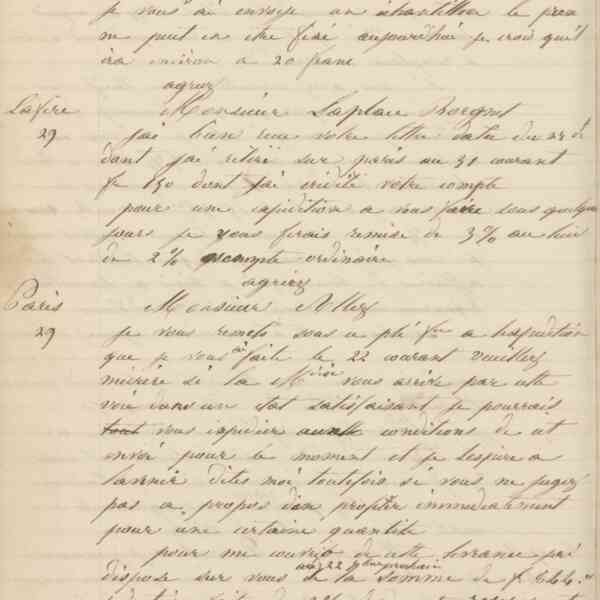 je vous ai envoyé un échantillon le prix
ne peut en etre fixé aujourd'hui je crois qu'il
ira environ a 20 franc
agréez
Lafère Monsieur Laplace
29 j'ai bien recu votre lettre datée du 28 ct
dont j'ai retiré sur paris au 31 courant
fr 150 dont j'ai crédité votre compte
pour une expedition a vous faire sous quelque
jours je vous ferais remise de 3% au lieu
de 2% escompte ordinaire
agréez
Paris Monsieur Allez
29 je vous remets sous ce pli fre a l'expedition
que je vous ai faite le 22 courant veuillez
m'ecrire si la Mdise vous arrive par cette
voie dans un etat satisfaisant je pourrais
tout vous expedier conditions de cet
envoi pour le moment et je l'espere a
l'avenir dites moi toutefois si vous ne jugez
pas a propos d'en profiter immediatement
pour une certaine quantité
pour me couvrir de cette livrance j'ai
au 22 prochain
disposé sur vous de la somme de f